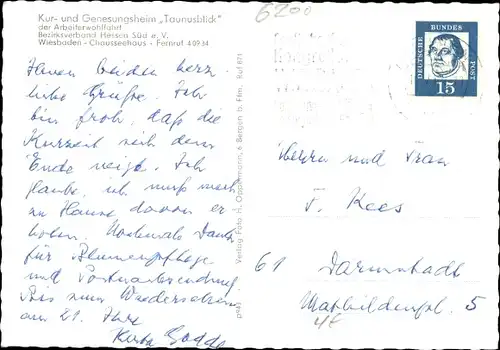 Kur- und Genesungsheim „Taunusblick"
der Arbeiterwohlfahrt
Bezirksverband Hessen Süd e. V.
Wiesbaden - Chausseehaus - Fernruf 4 09 34
Ihnen beiden herz-
liche Grüße. Ich
bin froh, daß die
Kurzeit sich dem
Ende neigt. Ich
glaube, ich muß mich
zu Hause davon er-
holen. Nochmals Dank
für Blumenpflege
und Postnachsendung.
Bis zum Wiedersehen
am 21. Ihre
Verlag Foto H. Oppermann, Bergen b. Ffm. Ruf 871
6200
DEUTSCHE
BUNDES
POST
15
Herrn und Frau
J. Kees
61 Darmstadt
Mathildenpl. 5